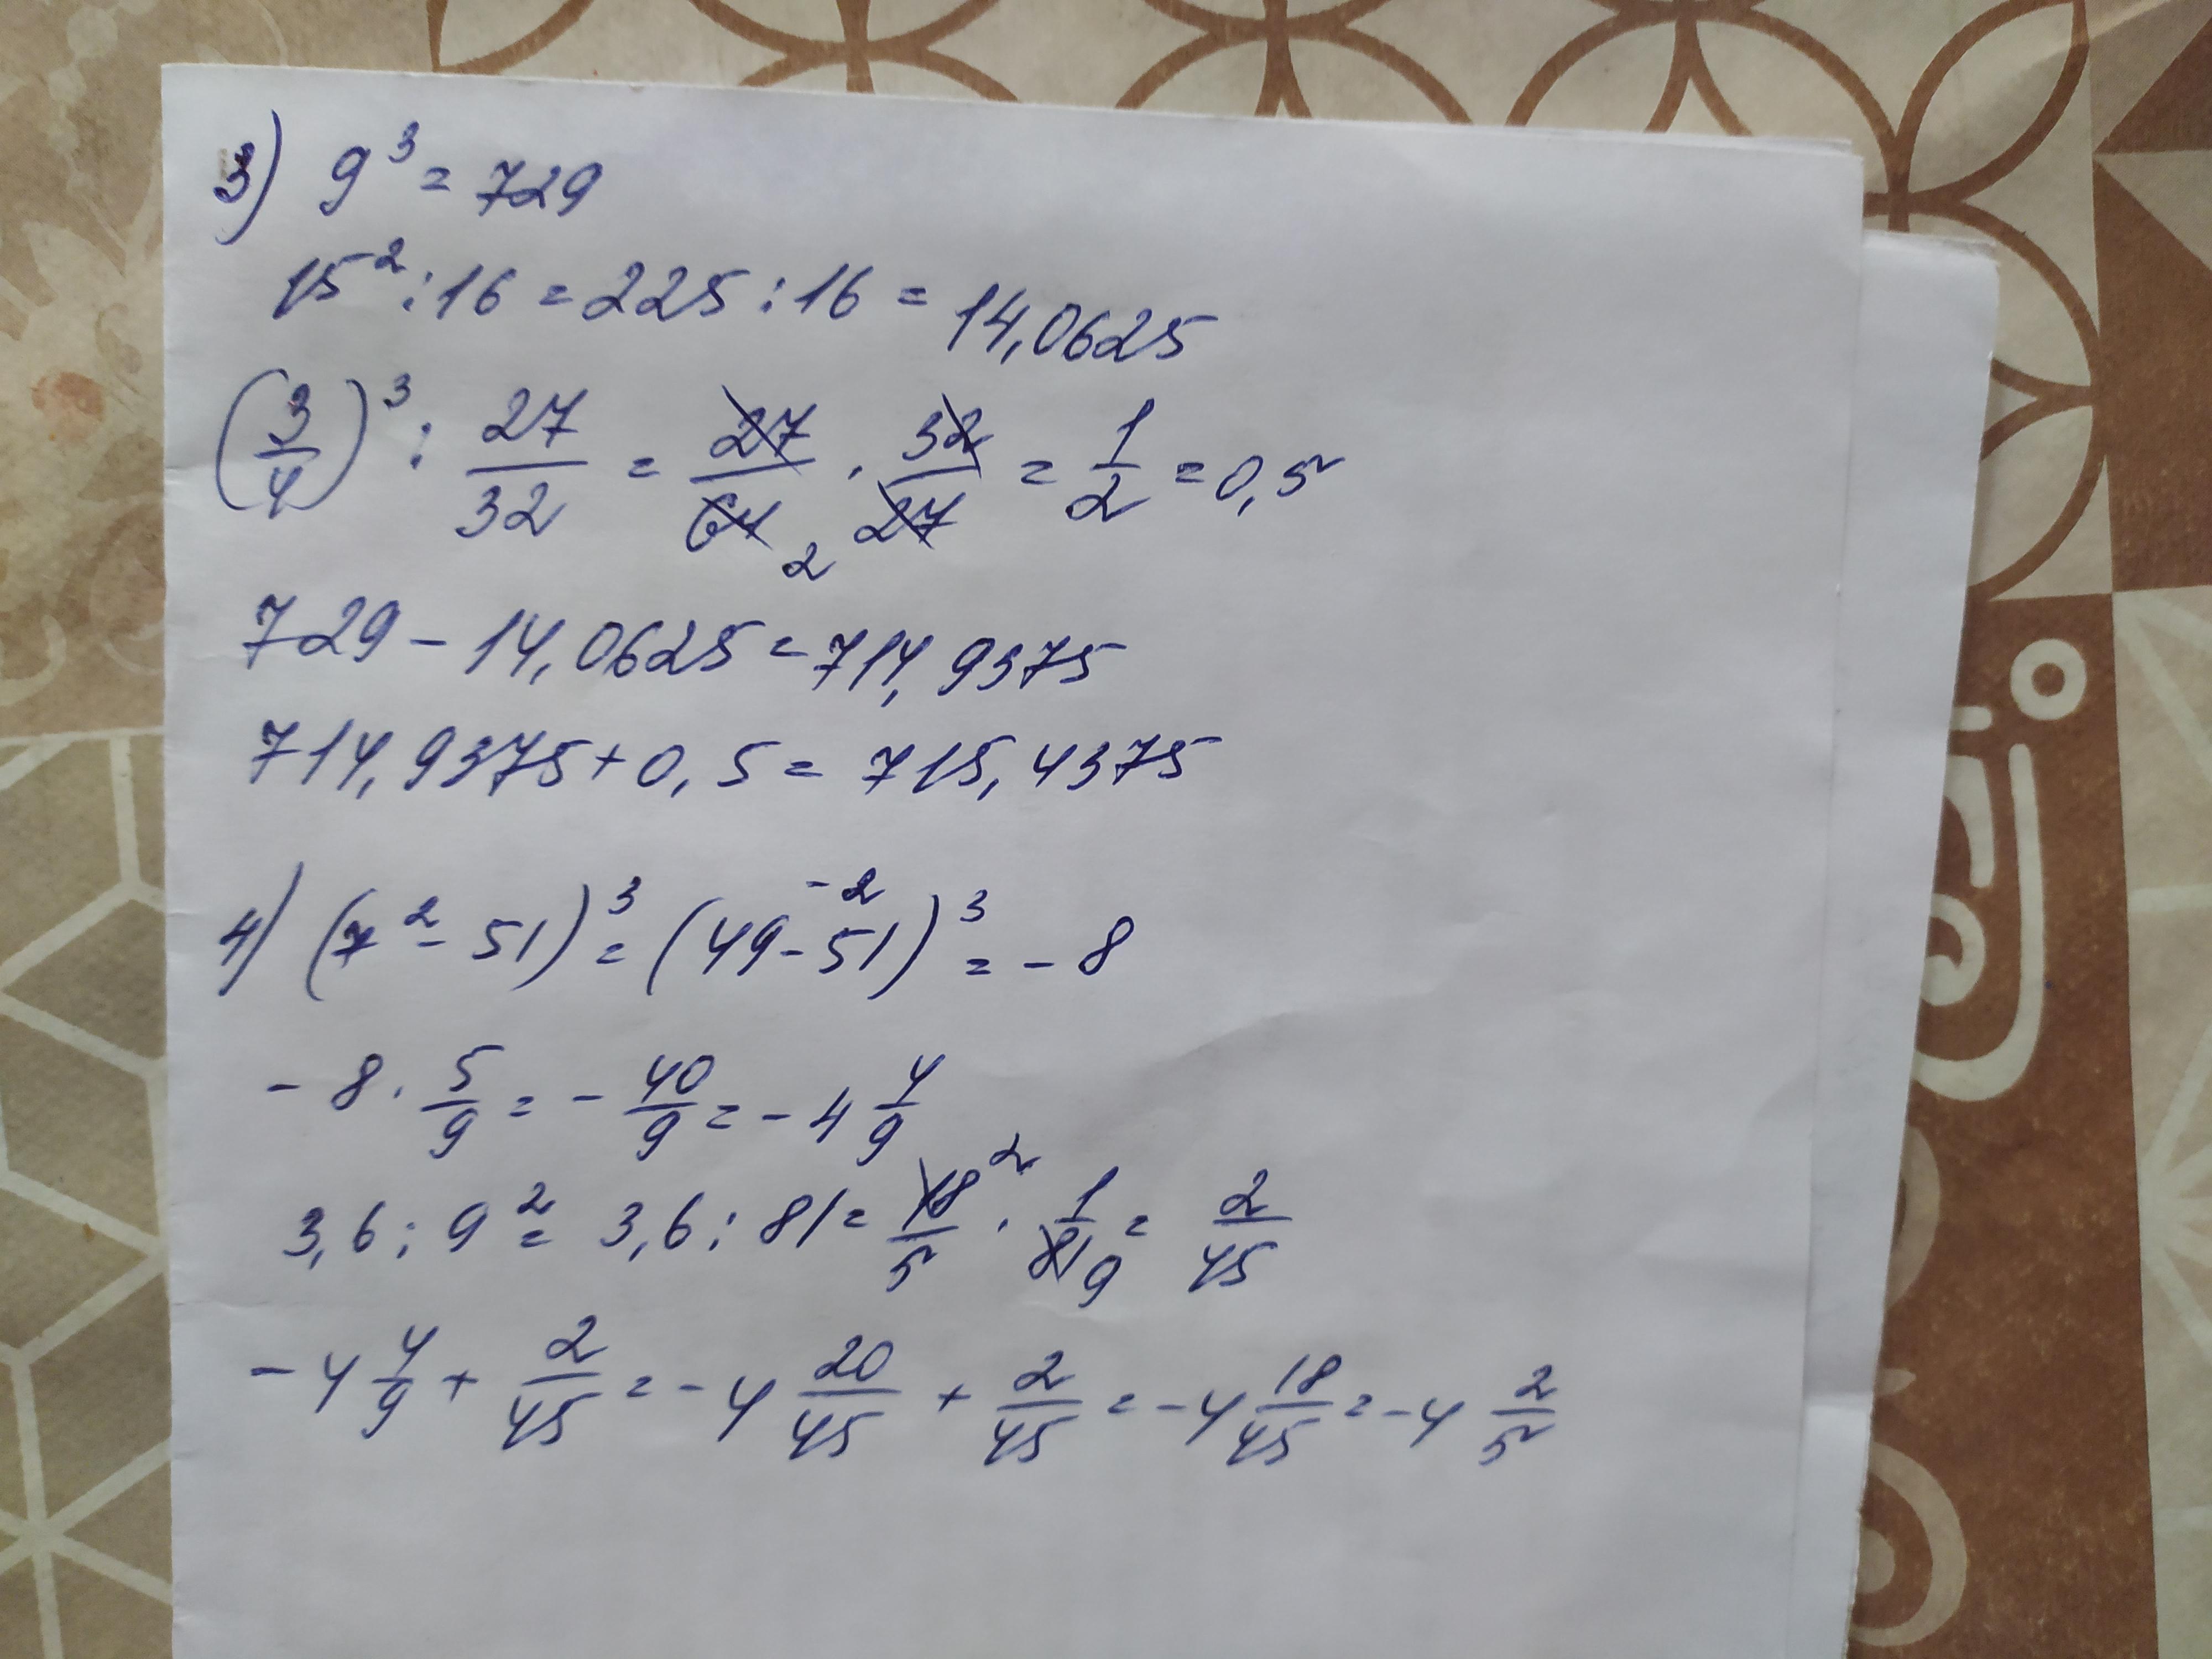 3) 9³ = 729
15² : 16 = 225 : 16 = 14,0625
(3/4)³ : 27/32 = 27/64 2 · 32/27 = 1/2 = 0,5
729 - 14,0625 = 714,9375
714,9375 + 0,5 = 715,4375
4) (7² - 51)³ = (49 - 51)³ -2 = -8
-8 · 5/9 = -40/9 = -4 4/9
3,6 : 9² = 3,6 : 81 = 18/5 2 · 1/81 9 = 2/45
-4 4/9 + 2/45 = -4 20/45 + 2/45 = -4 18/45 = -4 2/5